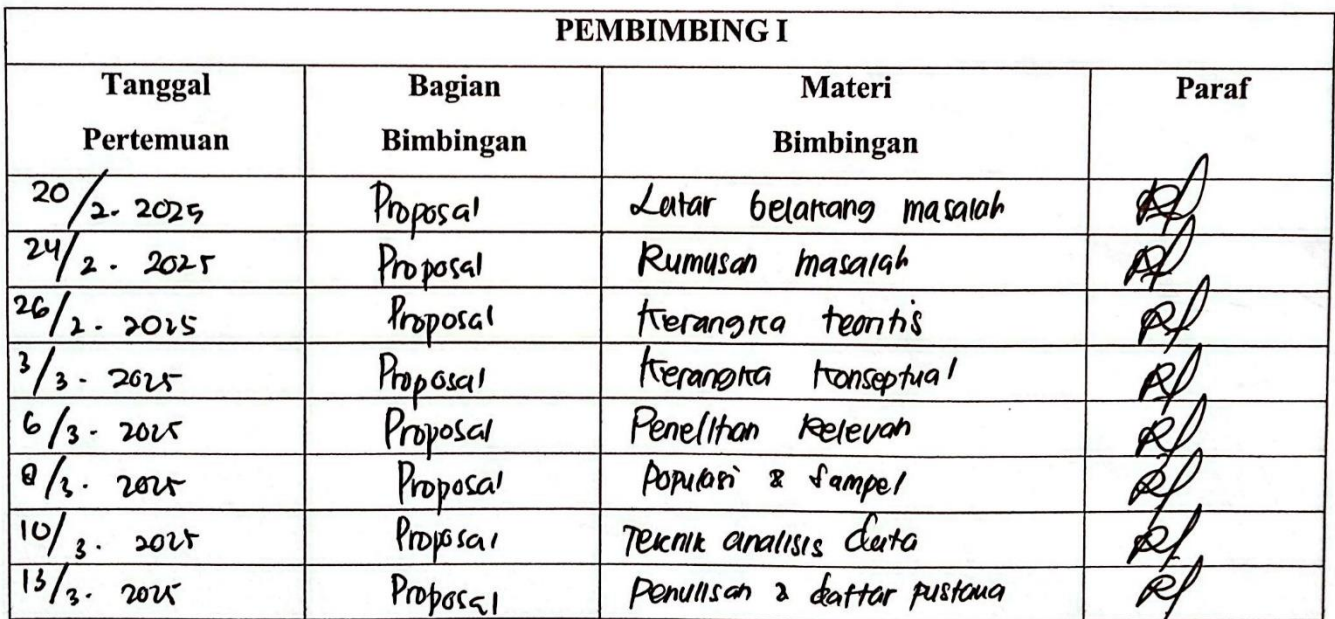 PEMBIMBING I
Tanggal Pertemuan Bagian Bimbingan Materi Bimbingan Paraf
20/2. 2025 Proposal Latar belakang masalah
24/2. 2025 Proposal Rumusan masalah
26/2. 2025 Proposal Kerangka teoritis
3/3. 2025 Proposal Kerangka Konseptual
6/3. 2025 Proposal Penelitian Relevan
8/3. 2025 Proposal Populasi & Sampel
10/3. 2025 Proposal Teknik analisis data
13/3. 2025 Proposal Penulisan & daftar pustaka